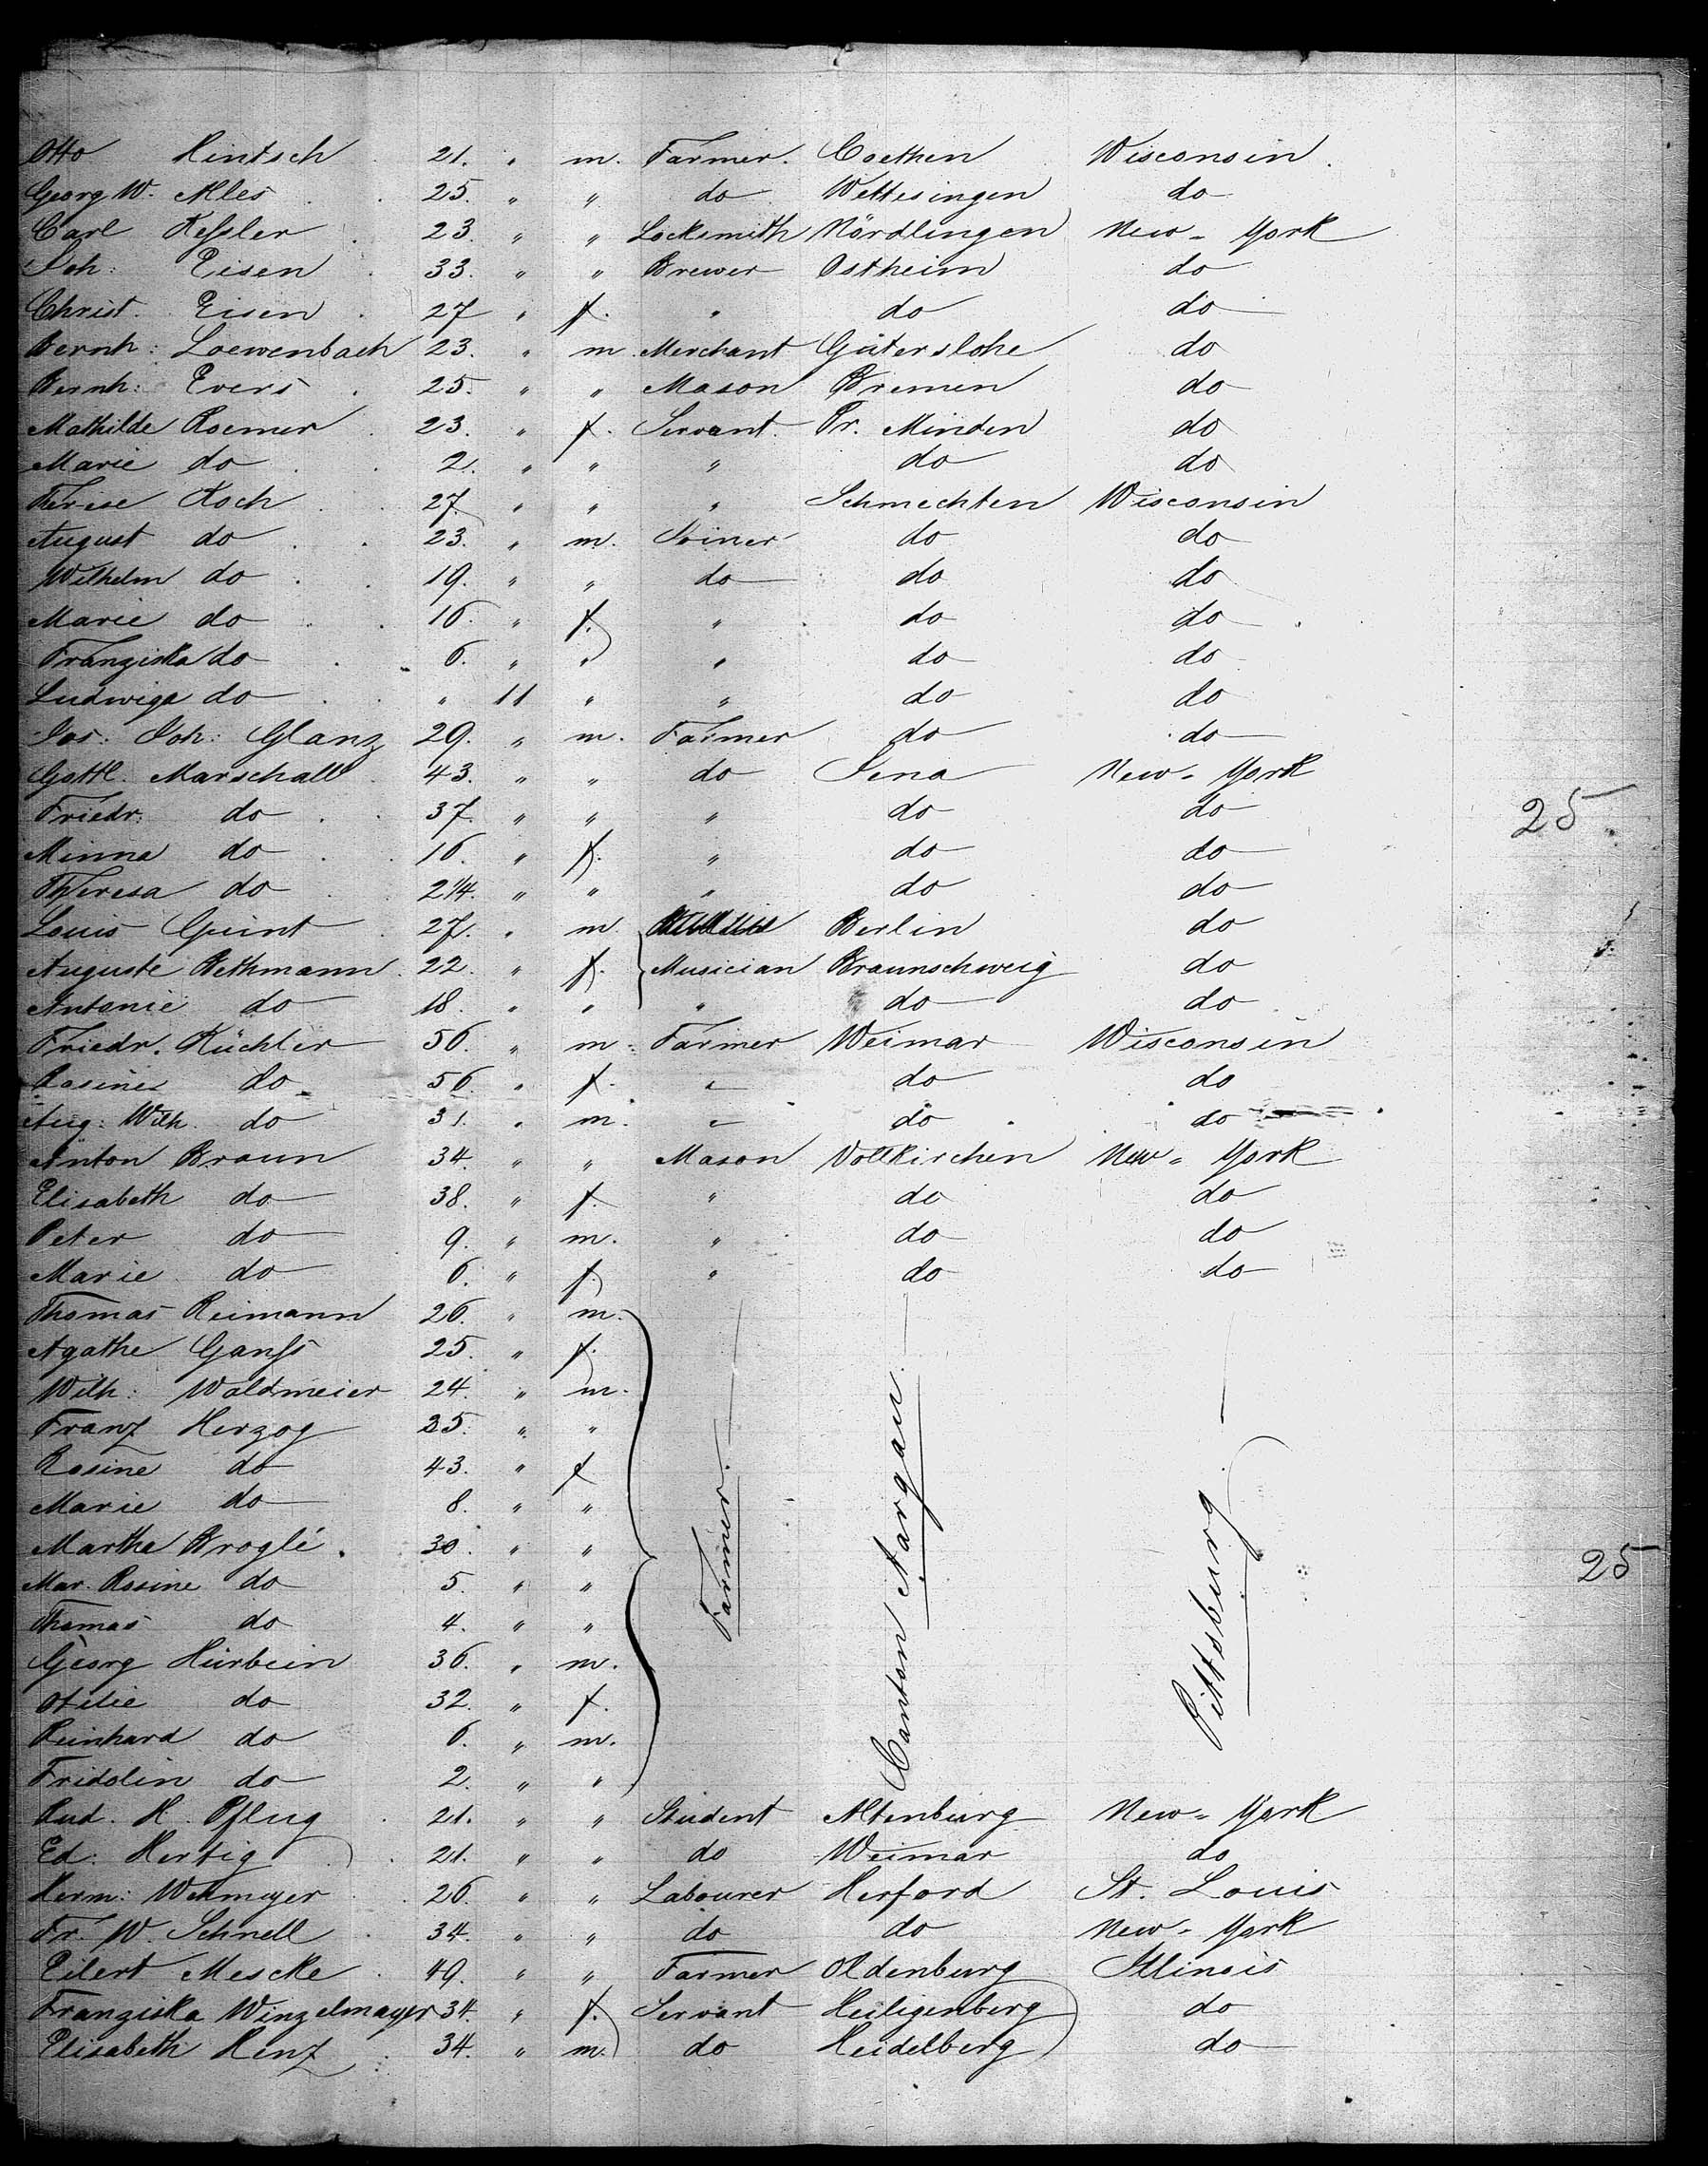 Otto Hintsch 21. " m. Farmer. Coethen Wisconsin
Georg W. Alles 25. " " do Wettesingen do
Carl Keſsler 23 " " Locksmith Nördlingen New-York
Joh: Eisen 33. " " Brewer Ostheim do
Christ. Eisen 27 " f. " do do
Bernh: Loewenbach 23. " m. Merchant Güterslohe do
Bernh: Evers 25. " " Mason Bremen do
Mathilde Roemer 23. " f. Servant. Pr. Minden do
Marie do 2. " " " do do
Therese Koch 27. " " " Schmechten Wisconsin
August do 23. " m. Joiner do do
Wilhelm do 19. " " do do do
Marie do 16. " f. " do do
Franziska do 6. " " " do do
Ludwiga do " 11 " " do do
Jos: Joh: Glanz 29. " m. Farmer do do
Gottl. Marschall 43. " " do Jena New-York
Friedr. do 37. " " " do do
25.
Minna do 16. " f. " do do
Theresa do 2 1/4. " " " do do
Louis Guint 27. " m. Berlin do
Auguste Bethmann 22. " f. Musician Braunschweig do
Antonie do 18. " " " do do
Friedr. Küchler 56. " m. Farmer Weimar Wisconsin
Rosine do 56. " f. " do do
Aug: Wilh. do 31. " m. " do do
Anton Braun 34. " " Mason Vollkirchen New-York
Elisabeth do 38. " f. " do do
Peter do 9. " m. " do do
Marie do 6. " f. " do do
Thomas Reimann 26. " m.
Agathe Ganſs 25. " f.
Wilh: Waldmeier 24. " m.
Franz Herzog 25. " "
Rosine do 43. " f
Marie do 8. " "
Martha Broglé. 30. " "
Mar. Rosine do 5. " "
Thomas do 4. " "
Georg Hürbein 36. " m.
Otilie do 32. " f.
Reinhard do 6. " m.
Fridolin do 2. " "
Farmer.
Canton Aargau
Pittsburg
25
Rud. H. Pflug 21. " " Student Altenburg New-York
Ed: Hertig 21. " " do Weimar do
Herm: Wehmeyer 26. " " Labourer Herford St. Louis
Fr. W. Schnell 34. " " do do New-York
Eilert Mescke 49. " " Farmer Oldenburg Illinois
Franziska Winzelmayer 34. " f. Servant Heiligenberg do
Elisabeth Henz 34. " m. do Heidelberg do